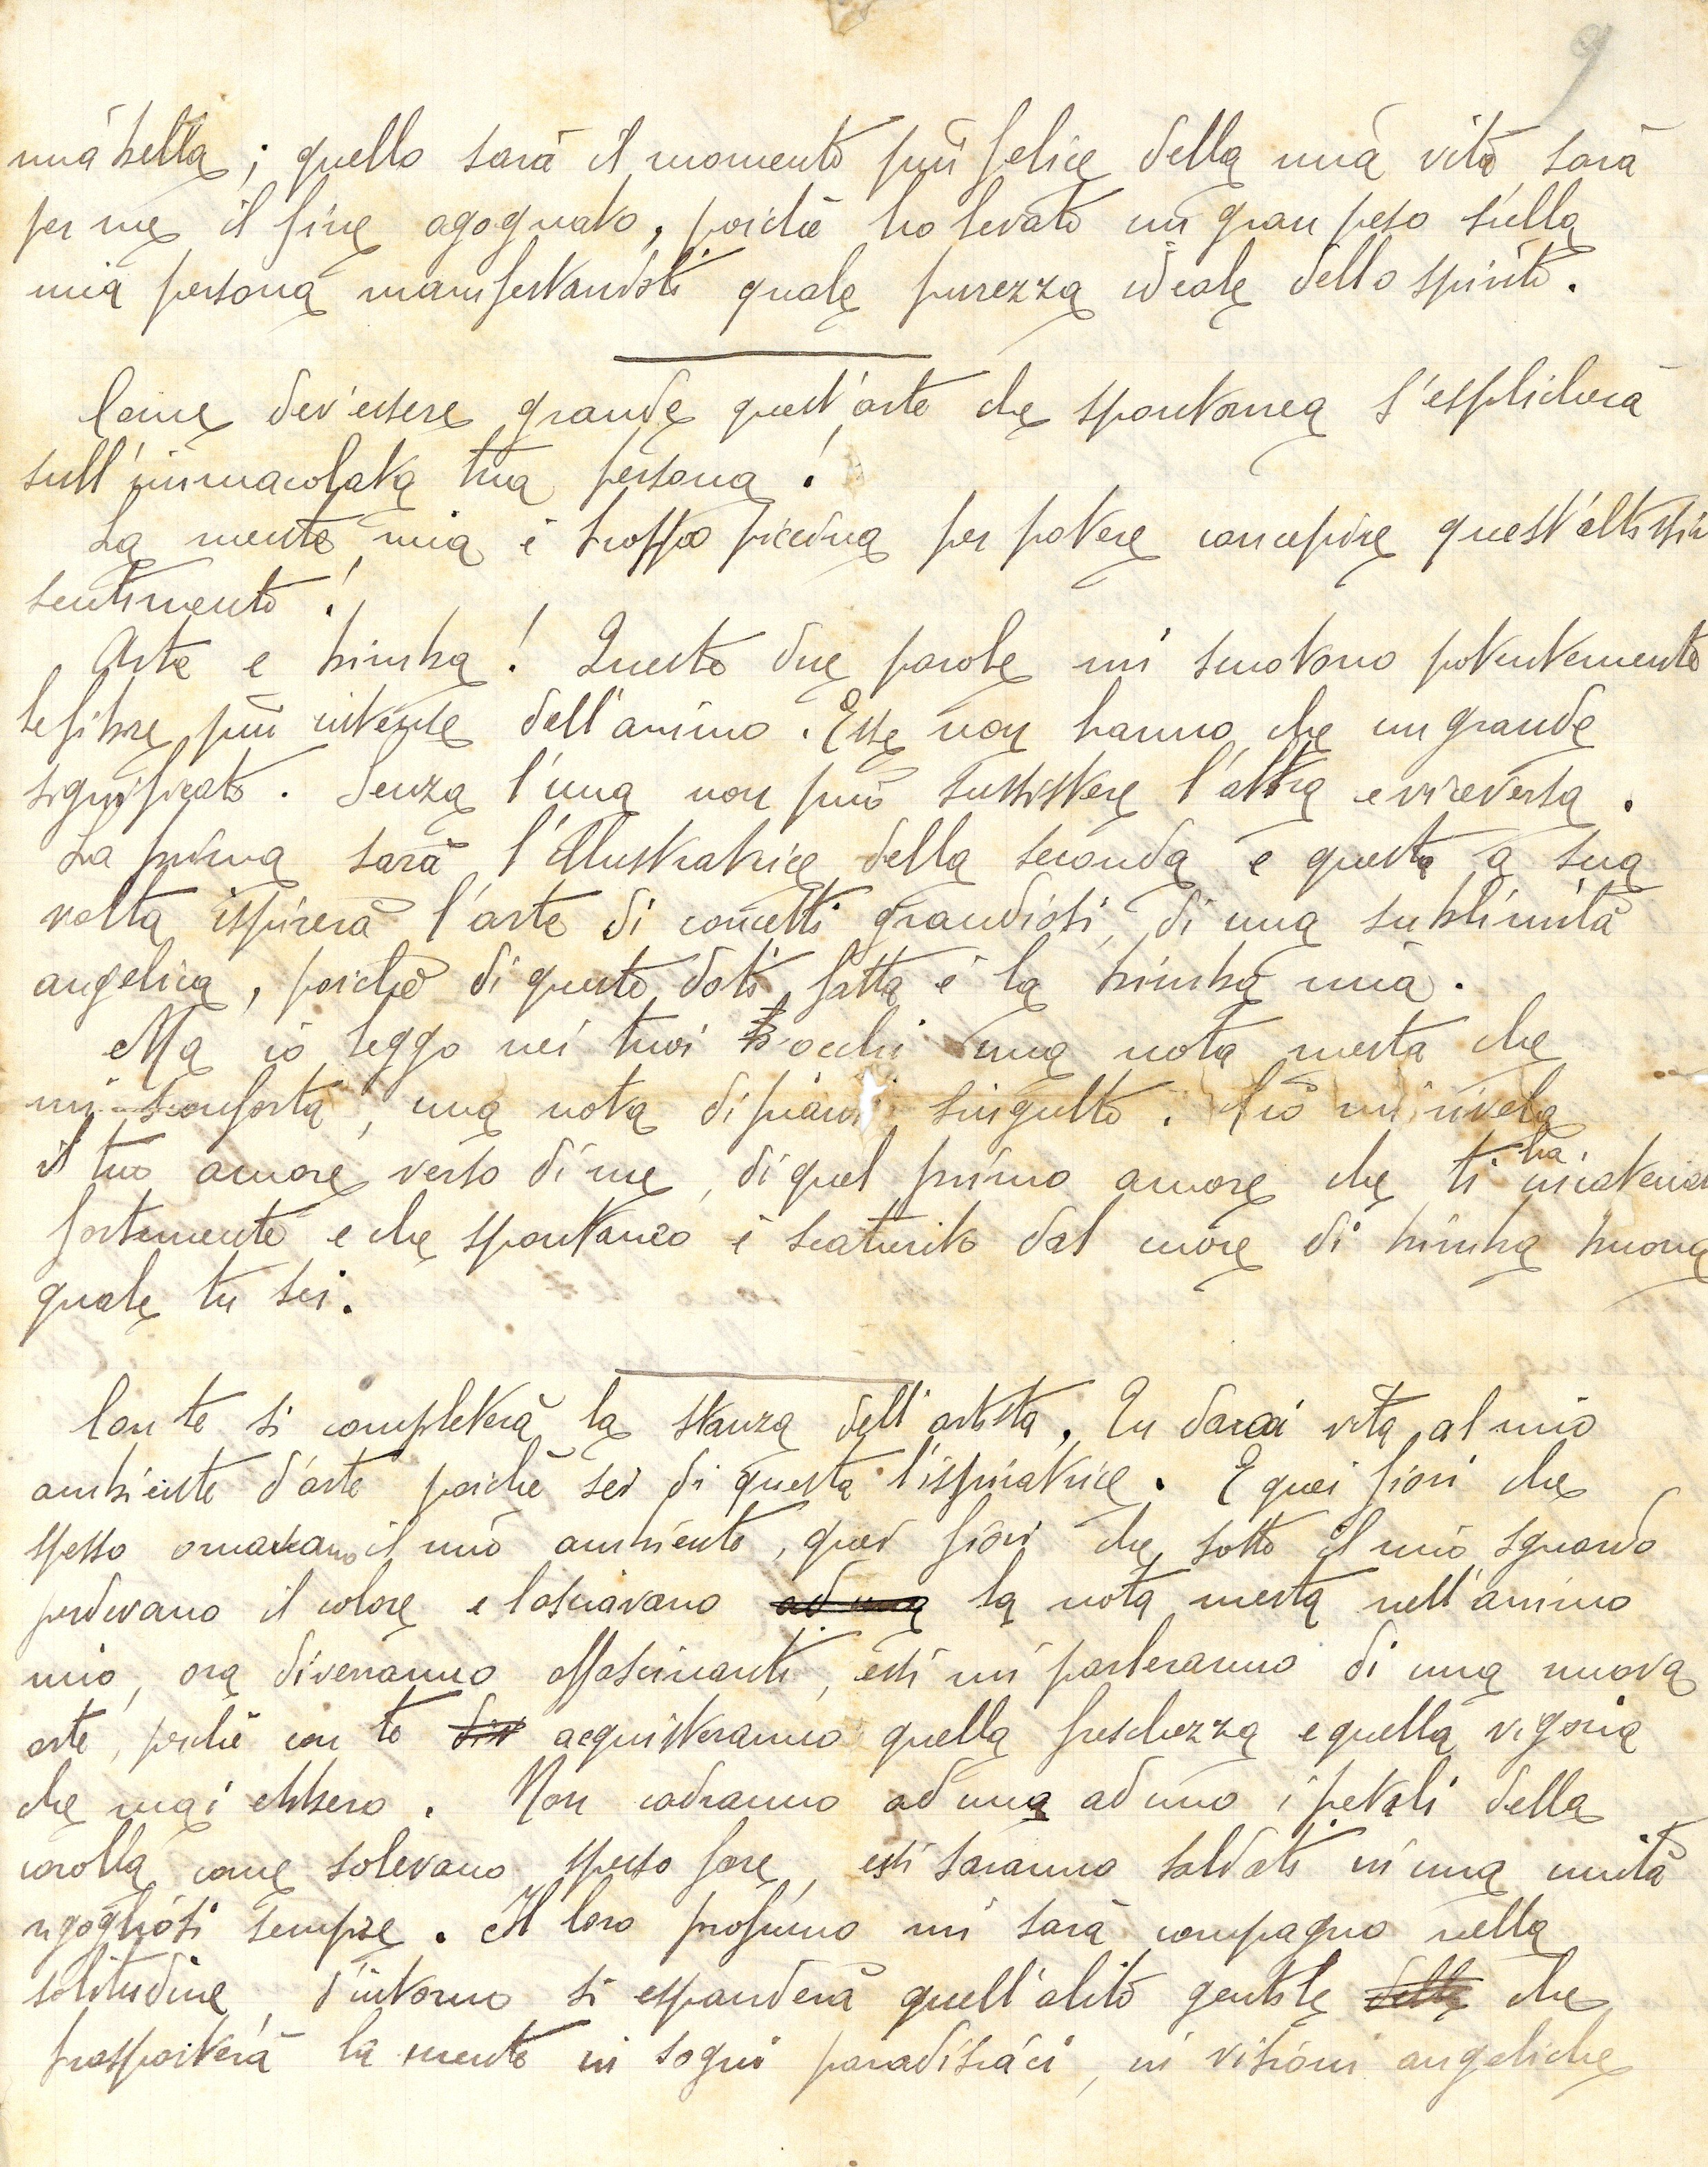 9
mia bella; quello sarà il momento più felice della mia vita, sarà
per me il fine agognato, poichè ho levato un gran peso sulla
mia persona manifestandoti quale purezza ideale dello spirito.
Come dev'essere grande quest'arte che spontanea s'esplicherà
sull'immacolata tua persona!
La mente mia è troppo piccina per potere concepire quest'altissim
sentimento!
Arte e bimba! Queste due parole mi scuotono potentemente
le fibre più intense dell'animo. Esse non hanno che un grande
significato. Senza l'una non può sussistere l'altra e viceversa.
La prima sarà l'illustratrice della seconda e questa a sua
volta ispirerà l'arte di concetti grandiosi, di una sublimità
angelica, poichè di queste doti fatta è la bimba mia.
Ma io leggo nei tuoi occhi una nota mesta che
mi sconforta, una nota di piani singulto. Ciò mi rivela
il tuo amore verso di me, di quel primo amore che ti ha incatenat
fortemente e che spontaneo è scaturito dal cuore di bimba buona
quale tu sei.
Con te si completerà la stanza dell'artista. Tu darai vita al mio
ambiente d'arte poichè sei di questa l'ispiratrice. E quei fiori che
spesso ornavano il mio ambiente, quei fiori che sotto il mio sguardo
perdevano il colore e lasciavano ad una la nota mesta nell'animo
mio, ora diverranno affascinanti, essi mi parleranno di una nuova
arte, perchè con te div acquisteranno quella freschezza e quella vigoria
che mai ebbero. Non cadranno ad uno ad uno i petali della
corolla come solevano spesso fare, essi saranno saldati in una unità
rigogliosi sempre. Il loro profumo mi sarà compagno nella
solitudine, d'intorno si espanderà quell'alito gentile delle che
trasporterà la mente in sogni paradisiaci, in visioni angeliche